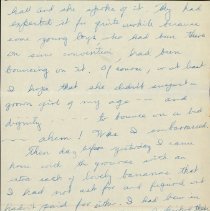 hall and she spoke of it. They had
expected it for quite awhile because
some young boys who had been there
on some convention, had been
bouncing on it. Of course, in at last
I hope that she didn't suspect a
grown girl of my age -- and
dignity -- to bounce on a bed
-- ahem! Was I embarrassed.
Then day before yesterday I came
home with the groceries with an
extra sack of lovely bananas that
I had not ask for and figured out
had I paid for either. I had been in